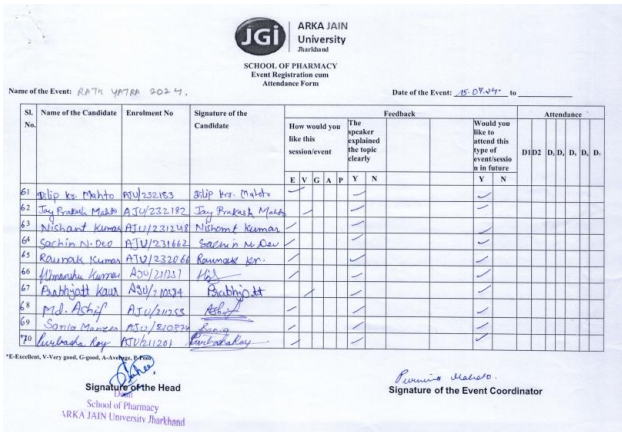 JGi
ARKA JAIN
University
Jharkhand
SCHOOL OF PHARMACY
Event Registration cum
Attendance Form
Name of the Event: RATH YATRA 2024.
Date of the Event: 15-07-24 to
Sl. No. Name of the Candidate Enrolment No Signature of the Candidate Feedback Attendance
How would you like this session/event The speaker explained the topic clearly Would you like to attend this type of event/sessio n in future D1 D2 D, D, D, D, D.
E V G A P Y N Y N
61 Dilip kr. Mahto AJU/232183 Dilip kr. Mahto
62 Jay Prakash Mahto AJU/232182 Jay Prakash Mahto
63 Nishant Kumar AJU/231248 Nishant Kumar
64 Sachin N. Deo AJU/231662 Sachin N Deo
65 Raunak Kumar AJU/232066 Raunak Kr.
66 Himanshu Kumar
67 Prabhjott Kaur Prabhjott
68 Md. Ashif Ashif
69 Sania Sania
70 Purbasha Roy AJU/211201 Purbasha Roy
*E-Excellent, V-Very good, G-good, A-Average, P-Poor
Signature of the Head
Dean
School of Pharmacy
ARKA JAIN University Jharkhand
Purnima Mahato.
Signature of the Event Coordinator